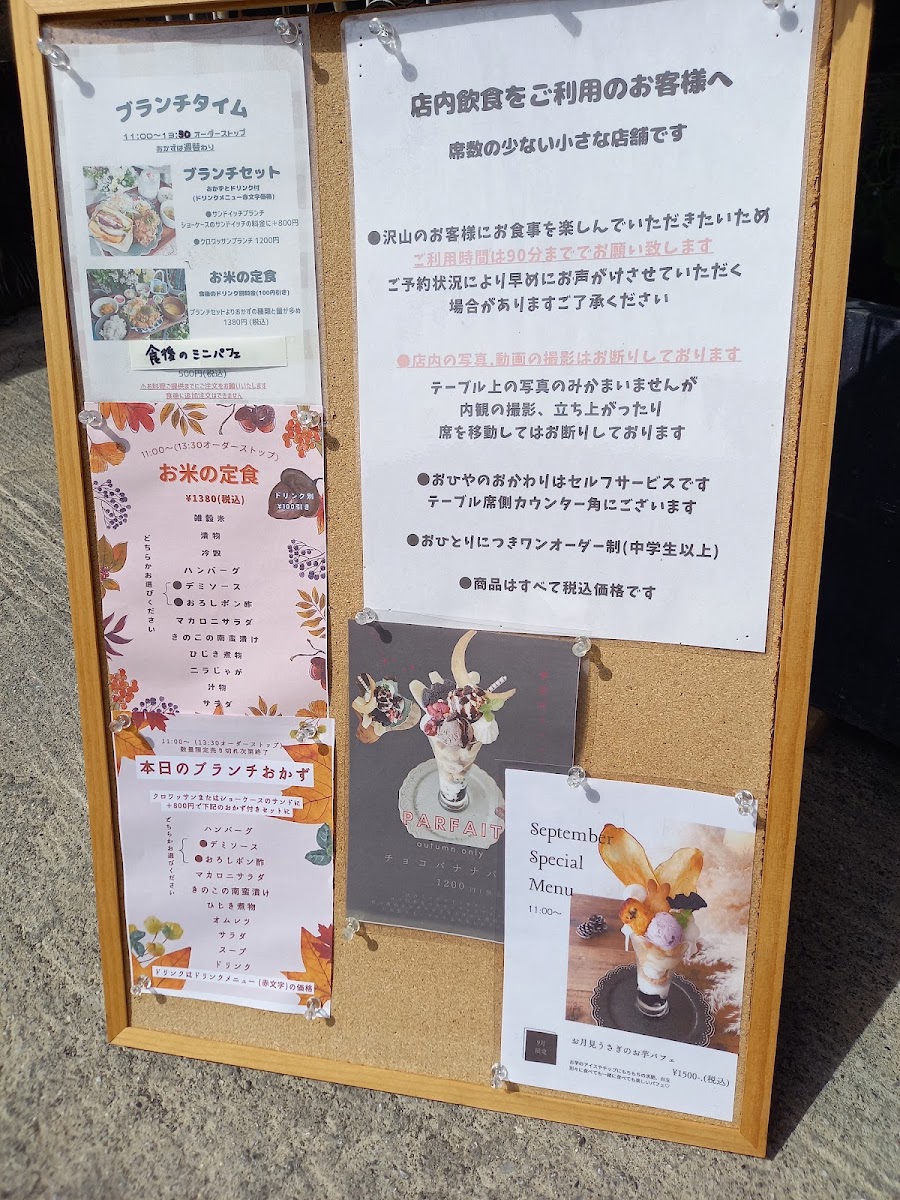 ブランチタイム
11:00〜13:30 オーダーストップ
おかずは週替わり
ブランチセット
おかずとドリンク付
(ドリンクメニュー赤文字価格)
●サンドイッチブランチ
ショーケースのサンドイッチの料金に+800円
●クロワッサンブランチ 1200円
お米の定食
食後のドリンク別料金(100円引き)
ブランチセットよりおかずの種類と量が多め
1380円 (税込)
食後のミニパフェ
500円(税込)
※お料理ご提供までにご注文をお願いいたします
食後に追加注文はできません
11:00〜(13:30オーダーストップ)
お米の定食
¥1380(税込)
ドリンク別
¥100引き
雑穀米
漬物
冷奴
ハンバーグ
●デミソース
●おろしポン酢
どちらかお選びください
マカロニサラダ
きのこの南蛮漬け
ひじき煮物
ニラじゃが
汁物
サラダ
11:00〜 (13:30オーダーストップ)
数量限定売り切れ次第終了
本日のブランチおかず
クロワッサンまたはショーケースのサンドに
+800円で下記のおかず付きセットに
ハンバーグ
●デミソース
●おろしポン酢
どちらかお選びください
マカロニサラダ
きのこの南蛮漬け
ひじき煮物
オムレツ
サラダ
スープ
ドリンク
ドリンクはドリンクメニュー(赤文字)の価格
店内飲食をご利用のお客様へ
席数の少ない小さな店舗です
●沢山のお客様にお食事を楽しんでいただきたいため
ご利用時間は90分まででお願い致します
ご予約状況により早めにお声がけさせていただく
場合がありますご了承ください
●店内の写真.動画の撮影はお断りしております
テーブル上の写真のみかまいませんが
内観の撮影、立ち上がったり
席を移動してはお断りしております
●おひやのおかわりはセルフサービスです
テーブル席側カウンター角にございます
●おひとりにつきワンオーダー制(中学生以上)
●商品はすべて税込価格です
PARFAIT
autumn only
チョコバナナパ
1200円
September
Special
Menu
11:00〜
9月
限定
お月見うさぎのお芋パフェ
¥1500-.(税込)